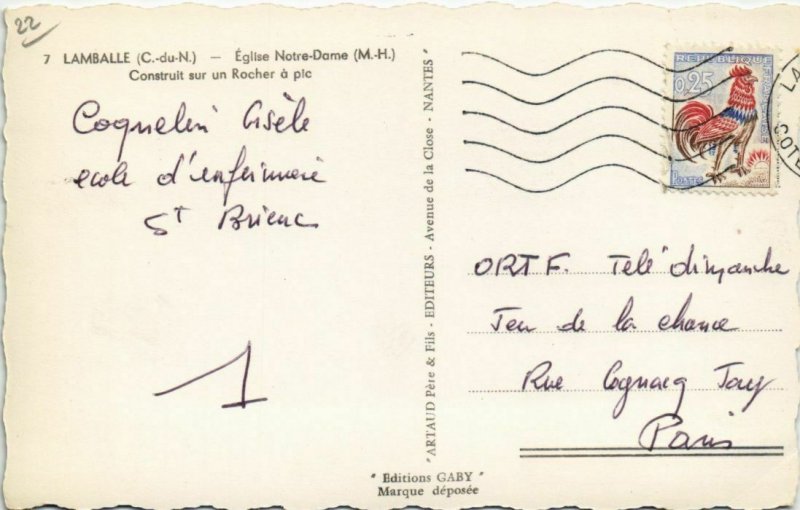 22
7 LAMBALLE (C.-du-N.) — Église Notre-Dame (M.-H.)
Construit sur un Rocher à pic
Coquelin Gisèle
ecole d'infirmière
St Brieuc
1
"ARTAUD Père & Fils - EDITEURS - Avenue de la Close - NANTES"
"Editions GABY"
Marque déposée
REPUBLIQUE FRANÇAISE
0,25
POSTES
LA
COTE
ORTF. Télé dimanche
Jeu de la chance
Rue Cognacq Jay
Paris